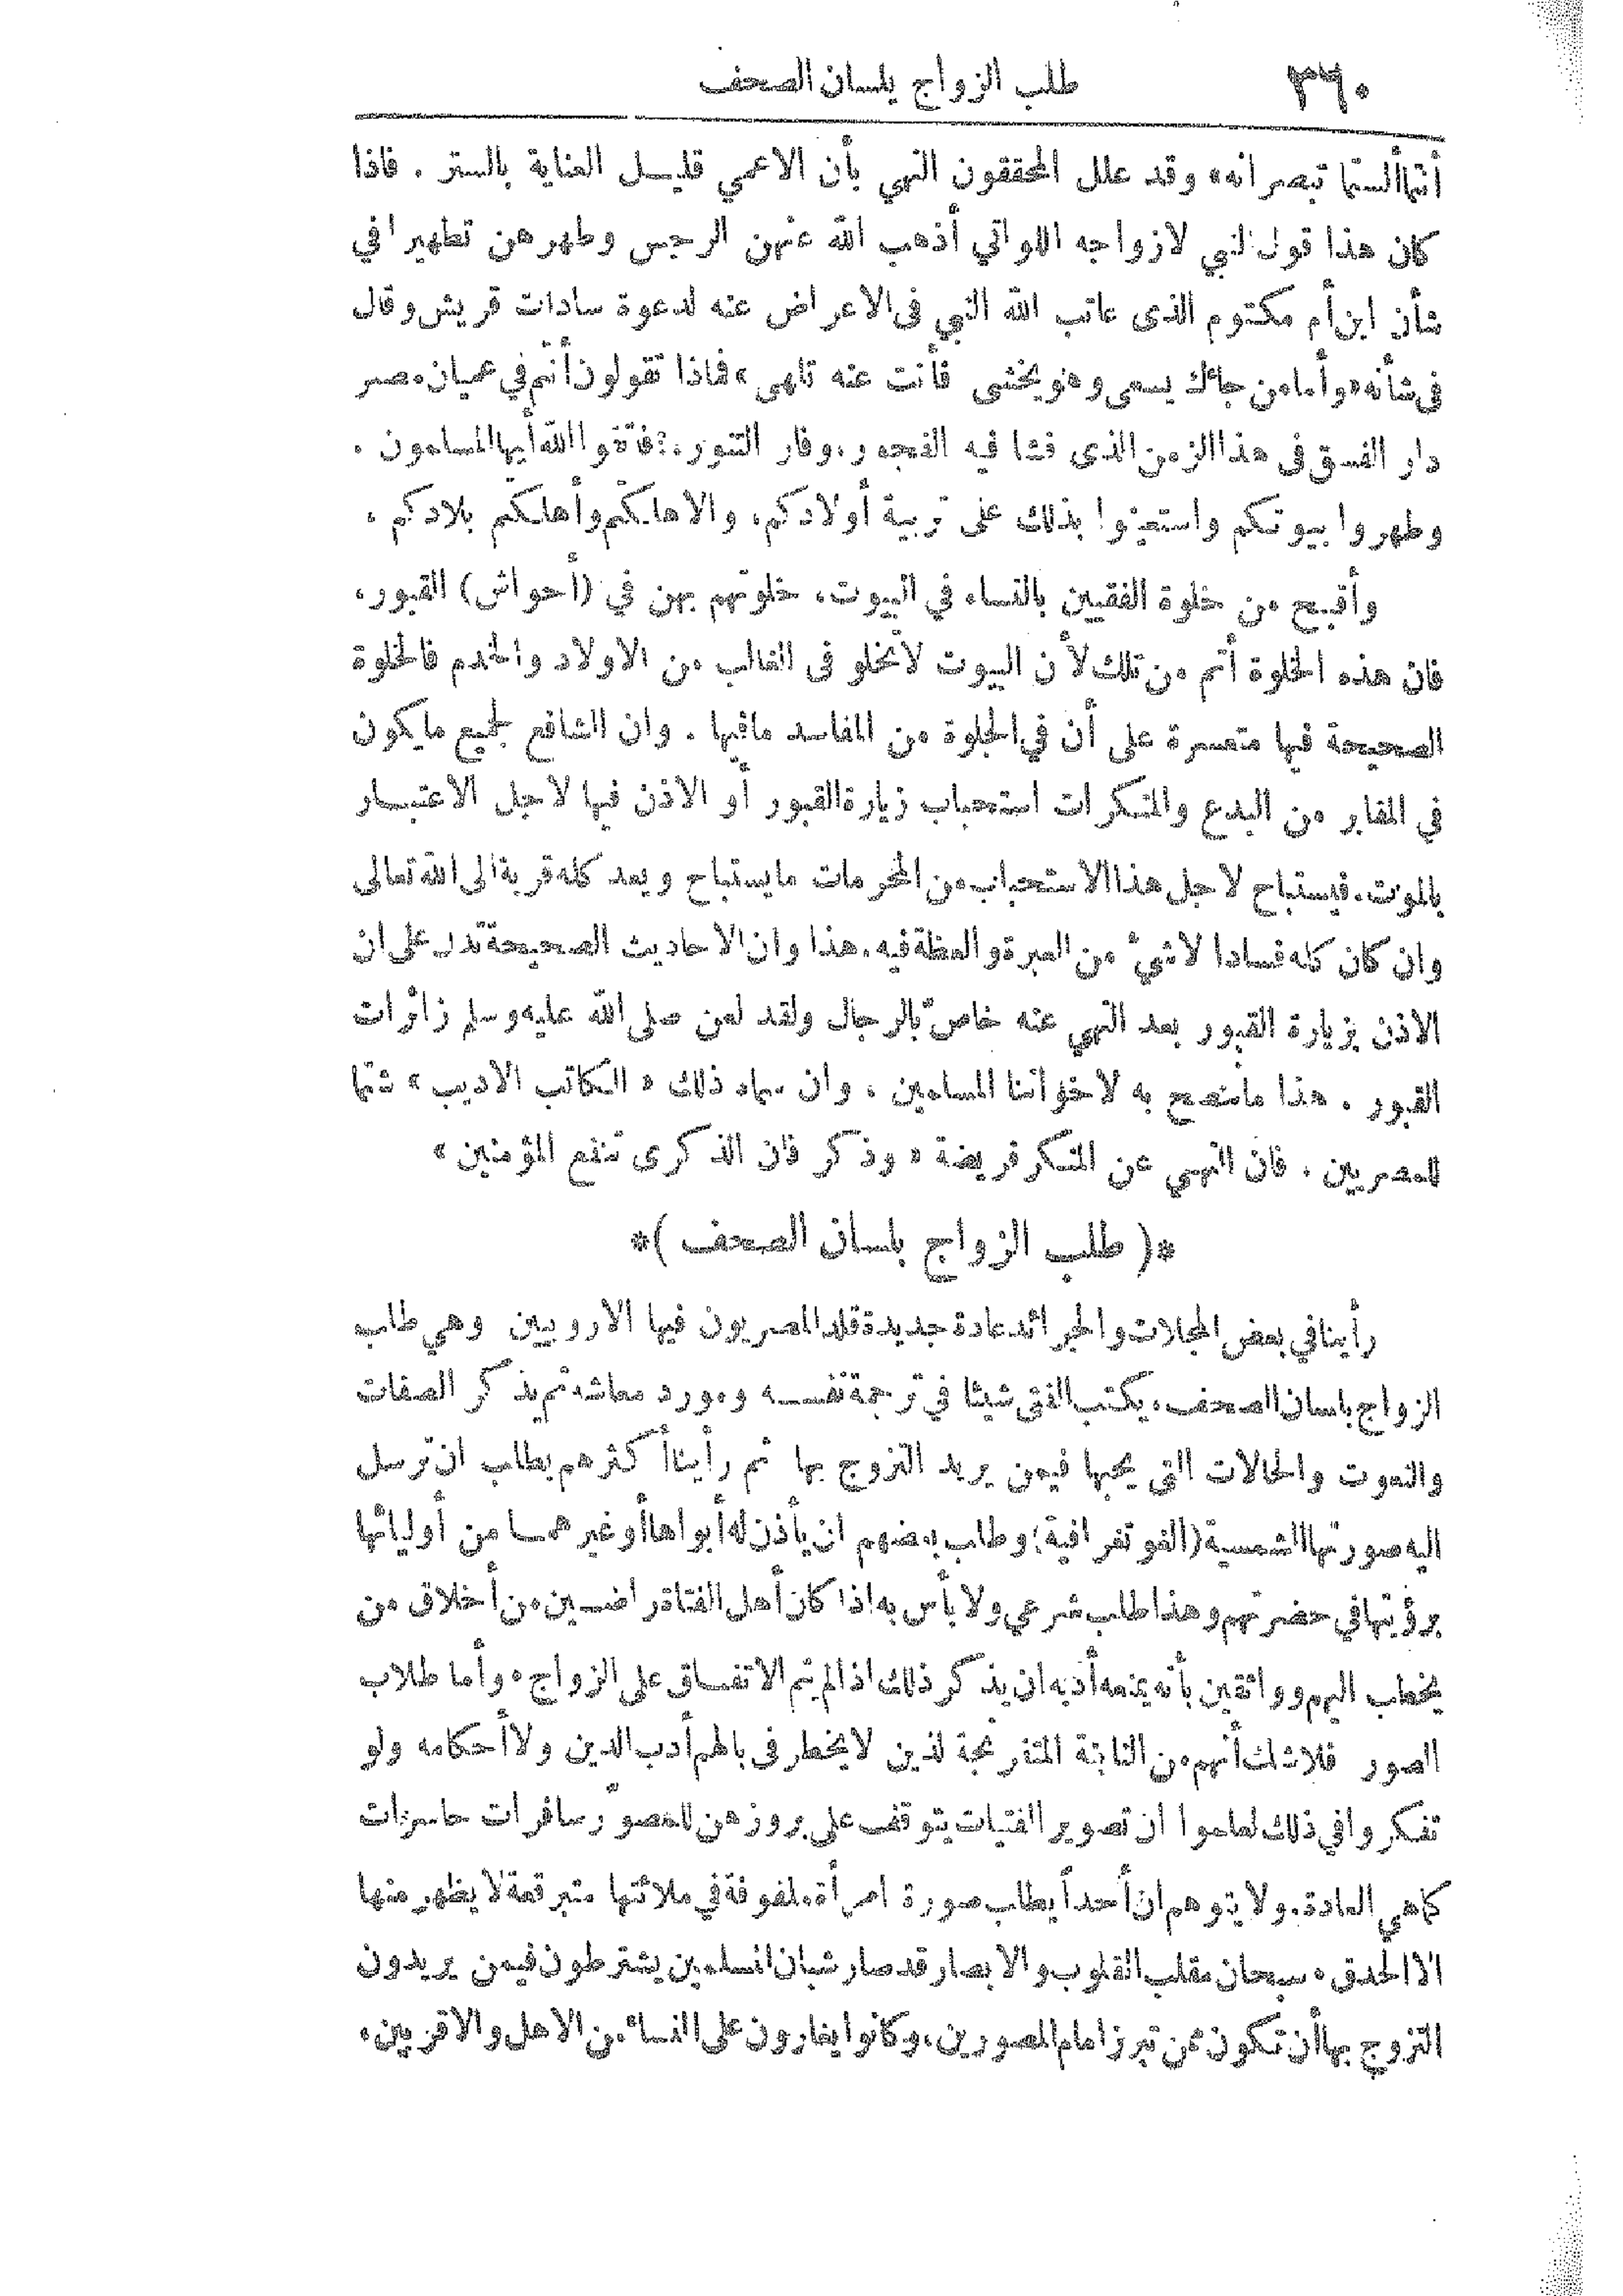 ٣٦٠ طلب الزواج بلسان الصحف
أنتما ألستما تبصرانه» وقد علل المحققون النهي بأن الاعمي قليل العناية بالستر . فاذا
كان هذا قول النبي لازواجه اللواتي أذهب الله عنهن الرجس وطهرهن تطهيرا في
شأن ابن أم مكتوم الذى عاتب الله النبي فى الاعراض عنه لدعوة سادات قريش وقال
فى شأنه «وأما من جاءك يسعى وهو يخشى فأنت عنه تلهى» فماذا تقولون أنتم في عميان مصر
دار الفسق فى هذا الزمن الذى فشا فيه الفجور، وفار التنور. : فاتقوا الله أيها المسلمون .
وطهروا بيوتكم واستعينوا بذلك على تربية أولادكم، والا هلكتم وأهلكتم بلادكم ،
وأقبح من خلوة الفقيين بالنساء في البيوت، خلوتهم بهن في (أحواش) القبور،
فان هذه الخلوة أتم من تلك لأن البيوت لا تخلو فى الغالب من الاولاد والخدم فالخلوة
الصحيحة فيها متعسرة على أن في الخلوة من المفاسد مافيها . وان الشافع لجميع ما يكون
في المقابر من البدع والمنكرات استحباب زيارة القبور أو الاذن فيها لاجل الاعتبار
بالموت. فيستباح لاجل هذا الاستحباب من المحرمات ما يستباح ويعد كله قربة الى الله تعالى
وان كان كله فسادا لا شيء من العبرة والعظة فيه. هذا وان الاحاديث الصحيحة تدل على ان
الاذن بزيارة القبور بعد النهي عنه خاصّ بالرجال ولقد لعن صلى الله عليه وسلم زائرات
القبور . هذا ما ننصح به لاخواننا المسلمين . وان سماه ذلك « الكاتب الاديب » شتما
للمصريين . فان النهي عن المنكر فريضة « وذكر فان الذكرى تنفع المؤمنين »
*( طلب الزواج بلسان الصحف )*
رأينا في بعض المجلات والجرائد عادة جديدة قلد المصريون فيها الاروبيين وهي طلب
الزواج بلسان الصحف، يكتب الفتى شيئا في ترجمة نفسه ومورد معاشه ثم يذكر الصفات
والنعوت والحالات التى يحبها فيمن يريد التزوج بها ثم رأينا أكثرهم يطلب ان ترسل
اليه صورتها الشمسية (الفوتغرافية) وطلب بعضهم ان يأذن له أبواها أو غيرهما من أوليائها
برؤيتها في حضرتهم وهذا طلب شرعي ولا بأس به اذا كان أهل الفتاة راضين من أخلاق من
يخطب اليهم وواثقين بأنه يمنعه أدبه ان يذكر ذلك اذا لم يتم الاتفاق على الزواج. وأما طلاب
الصور فلا شك أنهم من النابتة المتفرنجة لذين لا يخطر فى بالهم أدب الدين ولا أحكامه ولو
تفكروا في ذلك لعلموا ان تصوير الفتيات يتوقف على بروزهن للمصوّر سافرات حاسرات
كما هي العادة. ولا يتوهم ان أحداً يطلب صورة امرأة ملفوفة في ملائتها متبرقعة لا يظهر منها
الا الحدق. سبحان مقلب القلوب والابصار قد صار شبان المسلمين يشترطون فيمن يريدون
التزوج بها أن تكون ممن تبرز امام المصورين، وكانوا يغارون على النساء من الاهل والاقربين.